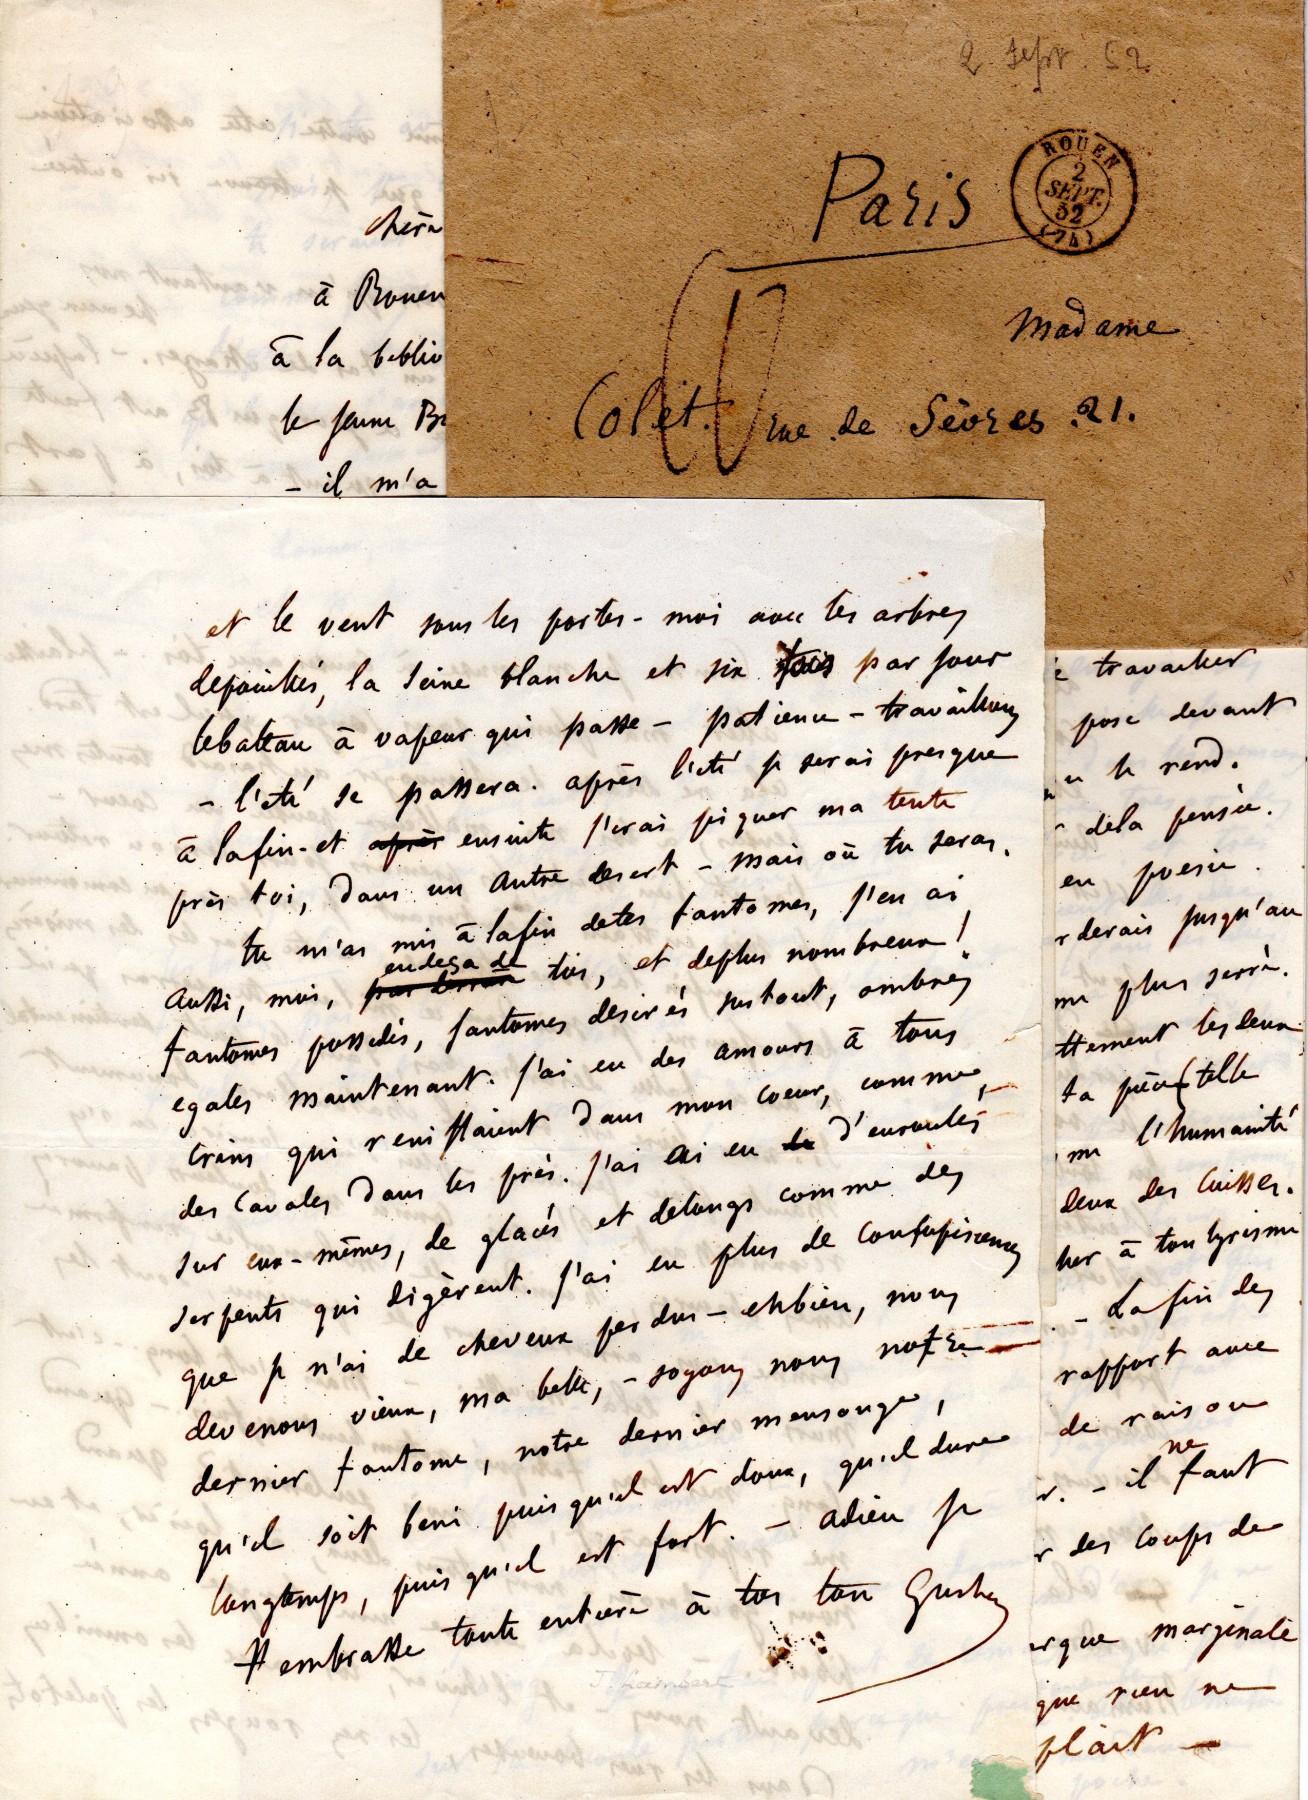 2 Sept. 52
ROUEN
2
SEPT.
52
(74)
Paris
Madame
Colet. rue de Sèvres .21.
chère
à Rouen
à la biblio
le jeune
- il m'a
et le vent sous les portes - moi avec les arbres
depouillés, la Seine blanche et six fois par jour
le bateau à vapeur qui passe - patience - travaillons
- l'été se passera. après l'été je serai presque
à la fin - et après ensuite j'irai piquer ma tente
près toi, dans un autre desert - mais où tu seras.
tu m'as mis à la fin de tes fantomes, j'en ai
aussi, moi, par derrière en deça de toi, et de plus nombreux!
fantômes possédés, fantômes desirés surtout, ombres
egales maintenant. J'ai eu des amours à tous
crins qui reniflaient dans mon coeur, comme
des cavales dans les près. J'ai ai eu de d'enroulés
sur eux-mêmes, de glacés et de longs comme des
serpents qui digèrent. J'ai eu plus de concupiscences
que je n'ai de cheveux perdus - eh bien, nous
devenons vieux, ma belle, - soyons nous notre
dernier fantome, notre dernier mensonge,
qu'il soit beni puisqu'il est doux, qu'il dure
longtemps, puisqu'il est fort. - adieu je
t'embrasse toute entière à toi ton Gustave
travailler
pose devant
le rend.
de la pensée.
en poesie.
rderais jusqu'au
plus serré.
ttement les deux
ta pièce (telle
l'humanité
deux des cuisses.
her à ton lyrisme
- La fin des
rapport avec
de raison
r. - il ne faut
r des coups de
rque marginale
que rien ne
plait -